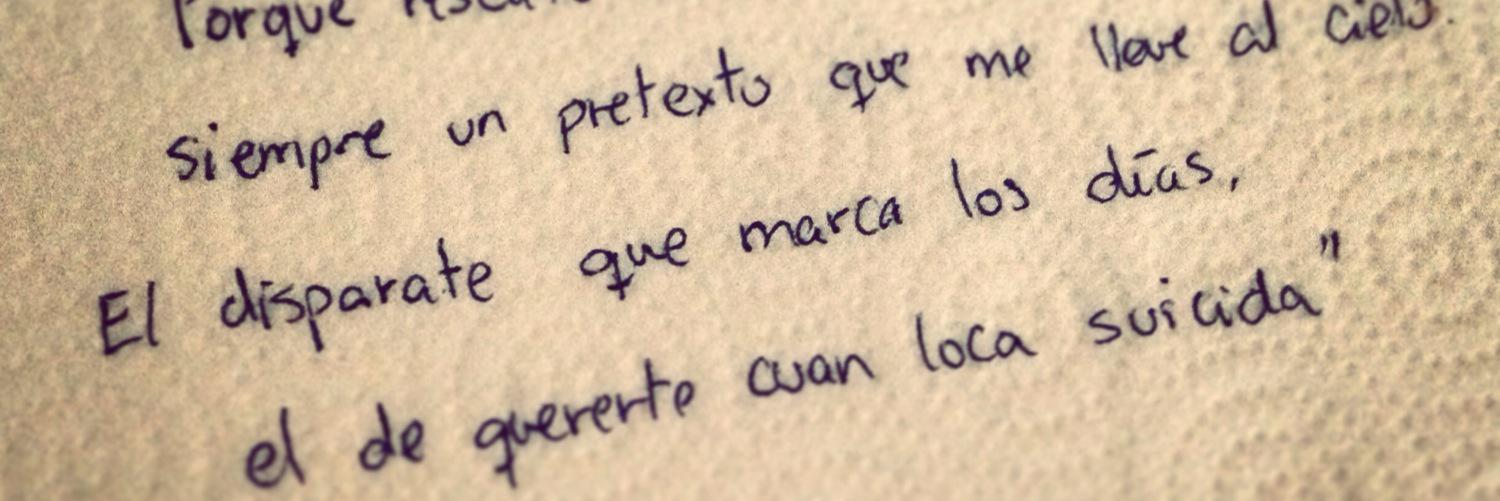 Porque
siempre un pretexto que me lleve al cielo.
El disparate que marca los días,
el de quererte cuan loca suicida"